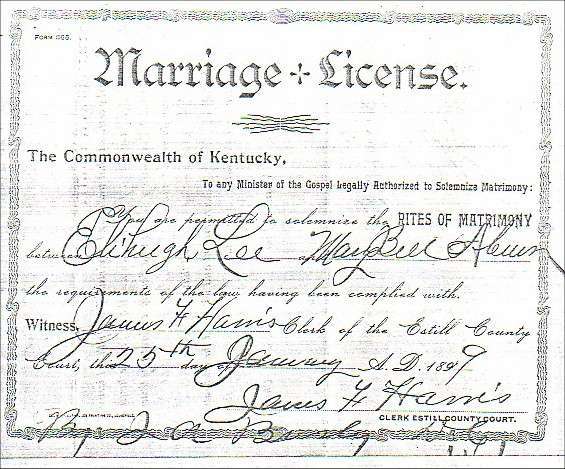 FORM
Marriage License.
The Commonwealth of Kentucky,
To any Minister of the Gospel Legally Authorized to Solemnize Matrimony:
You are permitted to solemnize the RITES OF MATRIMONY
between Elihugh Lee and May Bell
the requirements of the law having been complied with.
Witness, James F Harris Clerk of the Estill County
Court, this 25th day of January A. D. 1899
James F Harris
CLERK ESTILL COUNTY COURT.
By J A